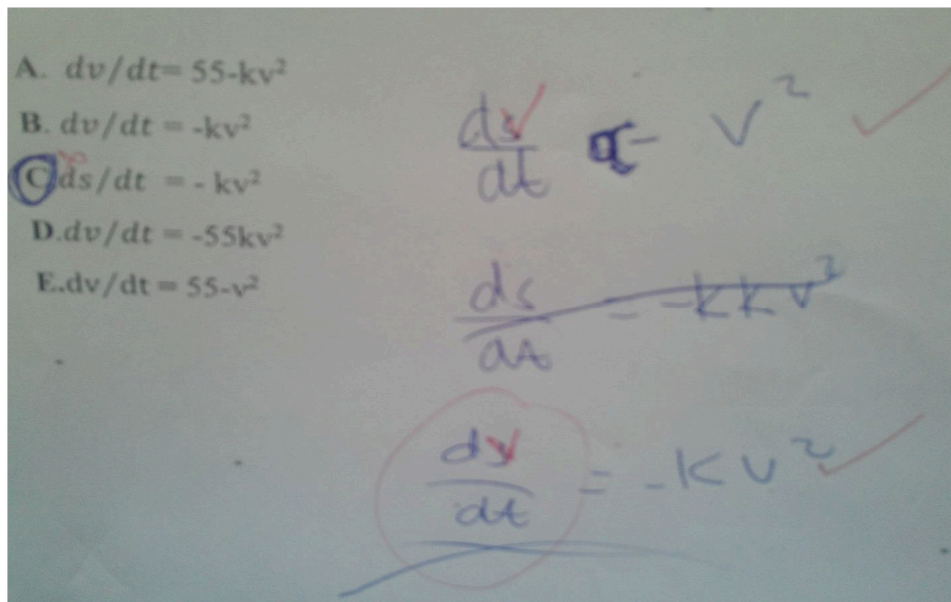 A. dv/dt= 55-kv²
B. dv/dt = -kv²
C ds/dt = - kv²
D.dv/dt = -55kv²
E.dv/dt = 55-v²
dv/dt α - v² ✓
ds/dt = -kkv²
dv/dt = -kv² ✓